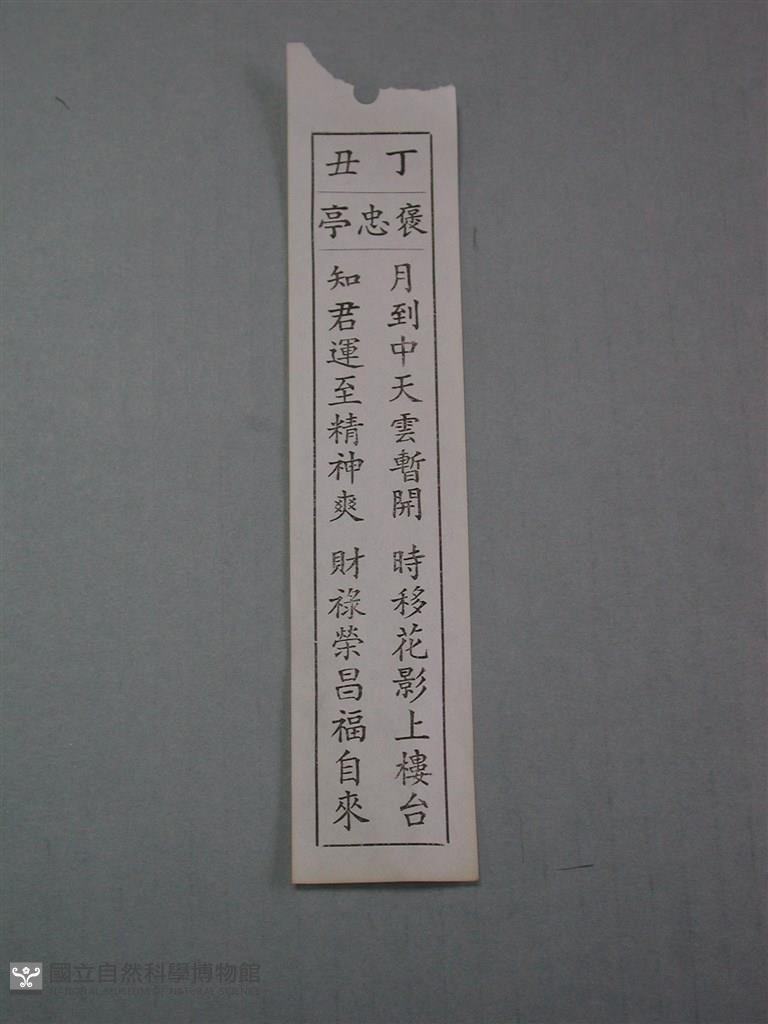 丁丑
褒忠亭
月到中天雲暫開　時移花影上樓台
知君運至精神爽　財祿榮昌福自來
國立自然科學博物館
NATIONAL MUSEUM OF NATURAL SCIENCE